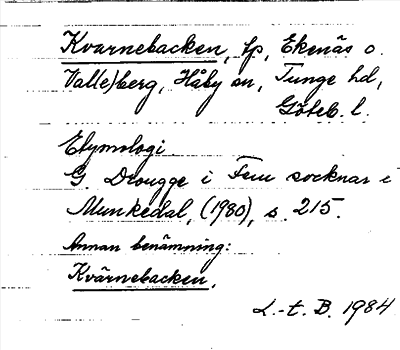 Kvarnebacken, lp, Ekenäs o.
Valle)berg, Håby sn, Tunge hd,
Göteb. l.
Etymologi
G. Drougge i Fem socknar i
Munkedal, (1980), s. 215.
Annan benämning:
Kvärnebacken.
L.-t. B. 1984